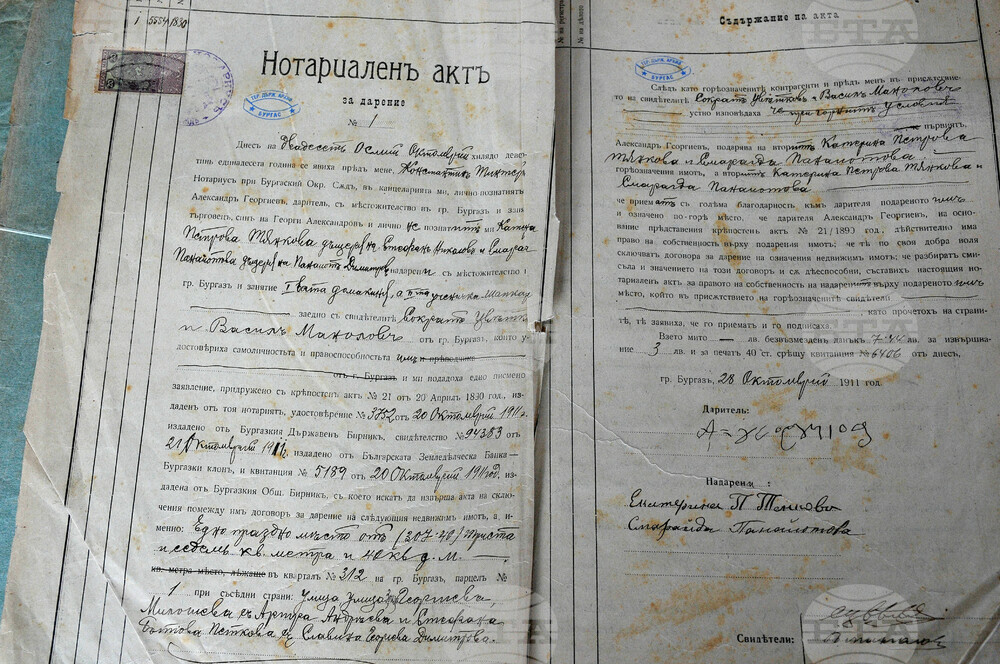 1 5554 1890
Нотариаленъ актъ
за дарение
№ 1
ТЕР. ДЪРЖ. АРХИВ
БУРГАС
Днесъ на Двадесетъ Осмий Октомврий хилядо девет-
стотинъ единадесета година се явиха прѣдъ мене, Константинъ
Нотариусъ при Бургаский Окр. Сѫдъ, въ канцеларията ми, лично познатиятъ
Александъръ Георгиевъ, даритель, съ мѣстожителство въ гр. Бургазъ и
търговецъ, синъ на Георги Александровъ и лично не познатитѣ и Катина
Петрова Тянкова дъщеря на Стефанъ Николовъ и Смарагда
Панаиотова дъщеря на Панаиотъ Димитровъ надарени съ мѣстожителство
гр. Бургазъ и занятие Iвата домакиня, а
заедно съ свидѣтелитѣ Сократъ Цвѣтковъ
и Василъ Манолович отъ гр. Бургазъ, които
удостовѣриха самоличностьта и правоспособностьта имъ и прѣподчика
отъ гр. Бургазъ и ми подадоха едно писмено
заявление, придружено съ крѣпостенъ актъ № 21 отъ 20 Априлъ 1890 год.,
издаденъ отъ тоя нотариятъ, удостовѣрение № 3752 отъ 20 Октомврий 1911 г.
издадено отъ Бургазкия Държавенъ Бирникъ, свидѣтелство № 94383 отъ
21 Октомврий 1911 г., издадено отъ Българската Земледѣлческа Банка—
Бургазки клонъ, и квитанция № 5189 отъ 20 Октомврий 1911 год.,
издадена отъ Бургазкия Общ. Бирникъ, съ което искатъ да извърша акта на склю-
чения помежду имъ договоръ за дарение на слѣдующия недвижимъ имотъ, а
именно: Едно праздно мѣсто отъ (307·40) Триста
и седемъ кв. метра и 40 кв. д. м.
кв. метра мѣсто, лѣжаще въ кварталъ № 312 на гр. Бургазъ, парцелъ №
1 при съсѣдни страни: улица, улица, Георгиева,
Милошева, къ Артура Андреева и Стефана
Петкова и Славина Георгиева Димитрова.
Съдържание на акта
ТЕР. ДЪРЖ. АРХИВ
БУРГАС
Слѣдъ като горѣозначенитѣ контрагенти и прѣдъ мен въ присѫтствие-
то на свидѣтелитѣ Сократъ Цвѣтковъ и Василъ Манолович
устно изповѣдаха че при горнитѣ условия
първиятъ,
Александъръ Георгиевъ, подарява на вторитѣ Катерина Петрова
Тянкова и Смарагда Панаиотова
горѣозначения имотъ, а вторитѣ Катерина Петрова Тянкова и
Смарагда Панаиотова
че приематъ съ голѣма благодарность къмъ дарителя подареното имъ
и означено по-горѣ мѣсто, че дарителя Александъръ Георгиевъ, на осно-
вание прѣдставения крѣпостенъ актъ № 21/1893 год., дѣйствително има
право на собственость върху подарения имотъ; че тѣ по своя добра воля
сключватъ договора за дарение на означения недвижимъ имотъ; че разбиратъ сми-
съла и значението на този договоръ и сѫ дѣеспособни, съставихъ настоящия но-
тариаленъ актъ за правото на собственость на надаренитѣ върху подареното имъ
мѣсто, който въ присѫтствието на горѣозначенитѣ свидѣтели като прочетохъ на страни-
тѣ, тѣ заявиха, че го приематъ и го подписаха
Взето мито — лв. безвъзмезденъ данъкъ лв. за извърша-
ние 3 лв. и за печатъ 40 ст. срѣщу квитанция № 6406 отъ днесъ,
гр. Бургазъ, 28 Октомврий 1911 год.
Даритель:
Надарени:
Екатерина П Тянкова
Смарайда Панайотова
Свидѣтели: